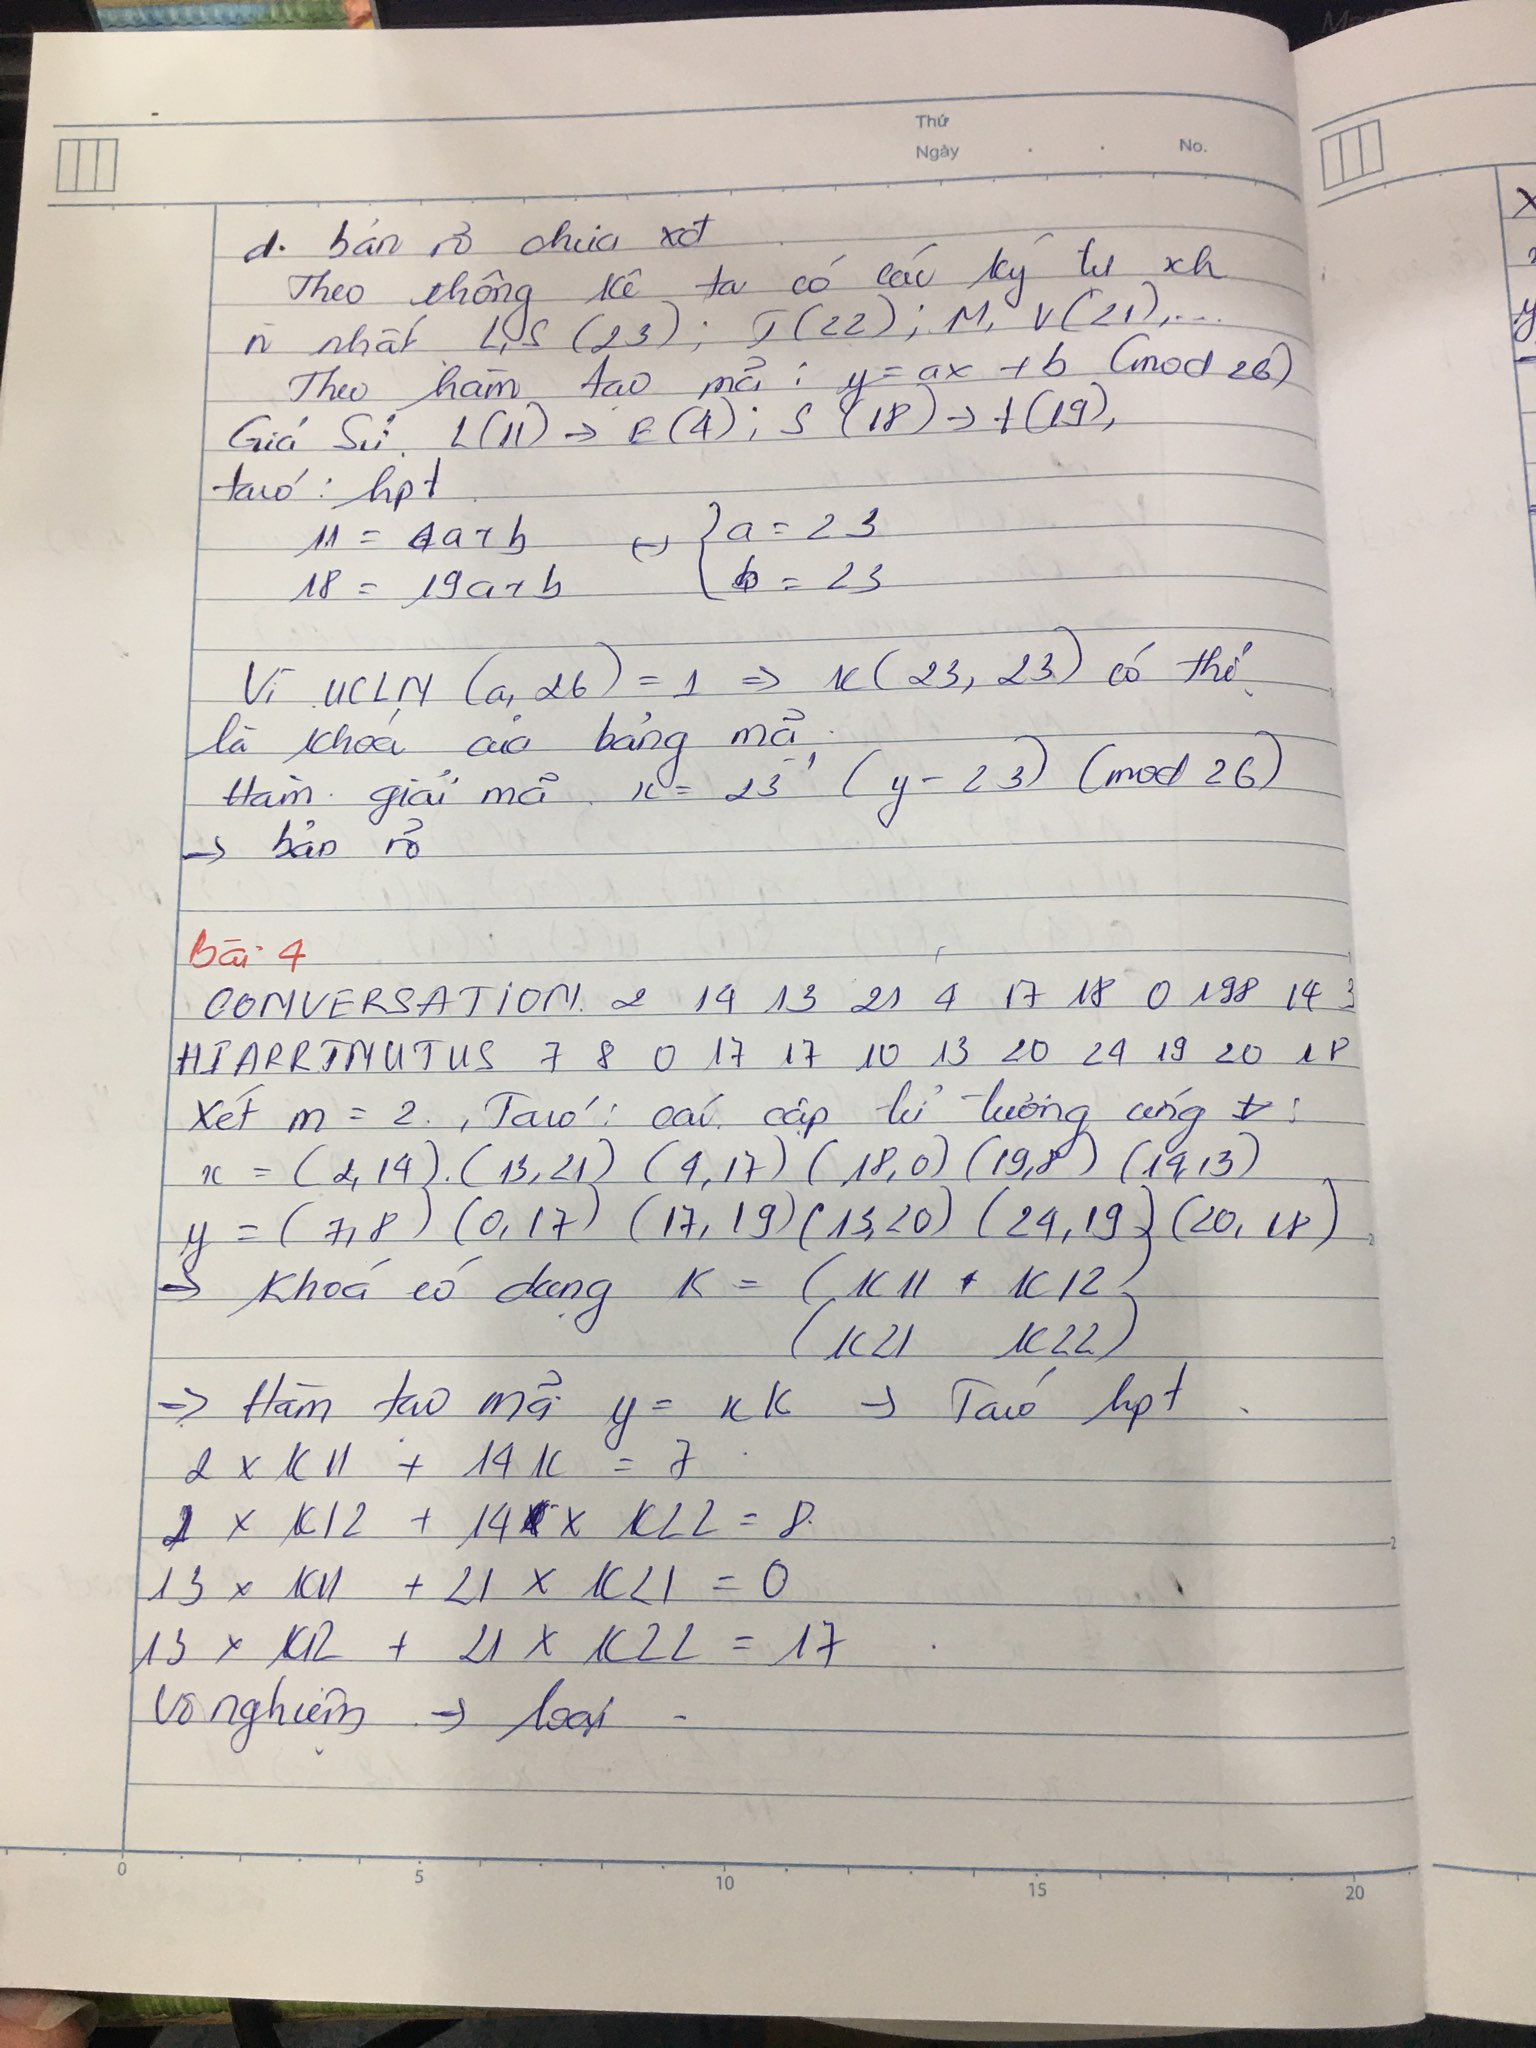 Thứ
Ngày . . No.
d. bản rõ chưa xđ
Theo thông kê ta có các ký tự xh
n nhất L,S (23); J(22); M, V(21),...
Theo hàm tạo mã: y = ax + b (mod 26)
Giả Sử. L(11) → E(4); S (18) → t(19),
ta có: hpt
11 = 4a + b ↔ { a = 23
18 = 19a + b { b = 23
Vì UCLN (a, 26) = 1 => K(23, 23) có thể
là khoá của bảng mã.
Hàm giải mã. x = 23⁻¹ (y - 23) (mod 26)
→ bản rõ
Bài 4
CONVERSATION. 2 14 13 21 4 17 18 0 198 14 3
HIARRTNUTUS 7 8 0 17 17 10 13 20 24 19 20 18
Xét m = 2. , Ta có: các cặp từ tương ứng :
x = (2, 14). (13, 21) (4, 17) (18, 0) (19, 8) (14, 13)
y = (7, 8) (0, 17) (17, 19) (13, 20) (24, 19) (20, 18)
→ Khoá có dạng K = (K11 + K12)
(K21 K22)
=> Hàm tạo mã y = xK → Ta có hpt
2 x K11 + 14K = 7
2 x K12 + 14 x K22 = 8.
13 x K11 + 21 x K21 = 0
13 x K12 + 21 x K22 = 17
Vô nghiệm → loại
0 5 10 15 20